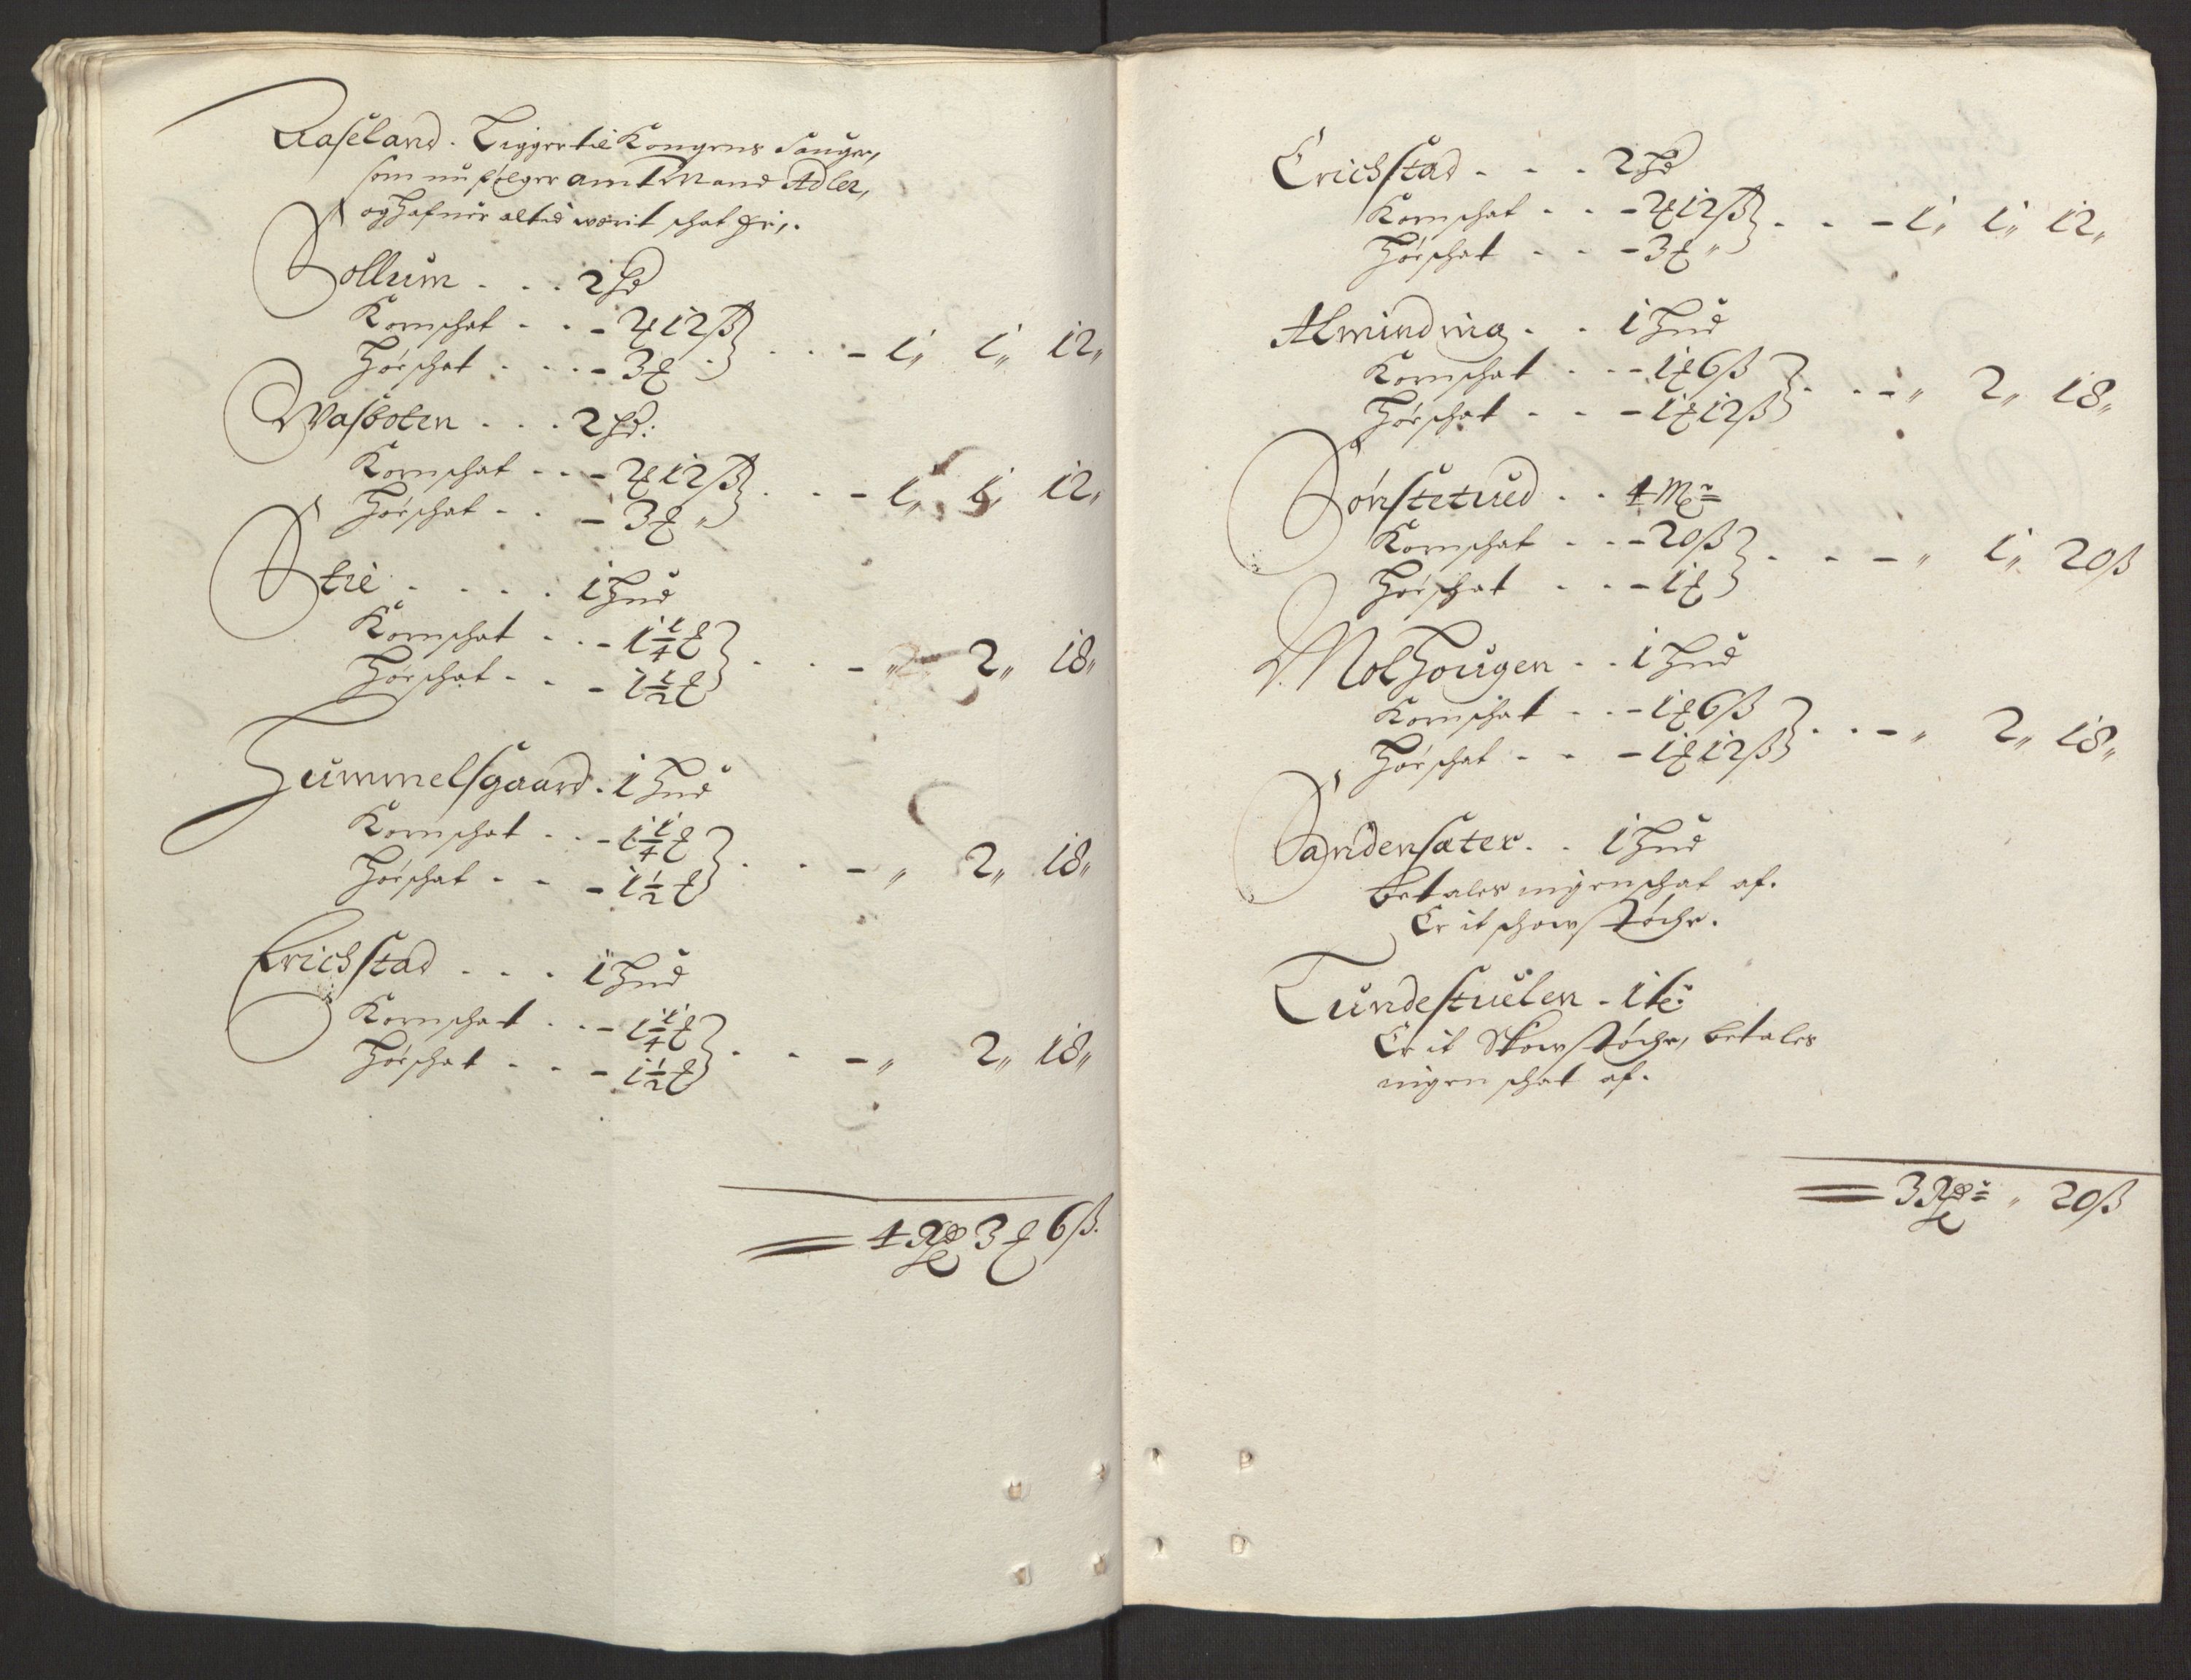 Raaseland. Ligger til Kongens Sauger,
som nu følger amtmand Adler,
og hafuer altid werit schat fri.
Sollum . . . 2 hd
Kornschat . . - 2 ℔ 12 ß
Hörschat . . . - 3 ℔ . . . - 1„ 1„ 12„
Wasboten . . . 2 hd:
Kornschat . . . - 2 ℔ 12 ß
Hörschat . . - 3 ℔ „ . . . - 1„ 1„ 12„
Stie . . . . 1 Hud
Kornschat . . - 1 1/4 ℔
Hörschat . . - 1 1/2 ℔ . . . - „ 2„ 18„
Hummelsgaard . 1 Hud
Kornschat . . - 1 1/4 ℔
Hörschat . . - 1 1/2 ℔ . . - „ 2„ 18„
Erichstad . . . 1 Hud
Kornschat . . - 1 1/4 ℔
Hörschat . . - 1 1/2 ℔ . . - „ 2„ 18„
4 Rd 3 ℔ 6 ß.
Erichstad . . . 2 hd
Kornschat . . - 2 ℔ 12 ß
Hörschat . . - 3 ℔ „ . . . - 1„ 1„ 12„
Alminding . . 1 Hud
Kornschat . . - 1 ℔ 6 ß
Hörschat . . - 1 ℔ 12 ß . . - „ 2„ 18„
Sönstetued . . 4 Mr
Kornschat . . - 20 ß
Hörschat . . - 1 ℔ . . . - „ 1„ 20 ß
Molhougen . . 1 Hud
Kornschat . . - 1 ℔ 6 ß
Hörschat . . - 1 ℔ 12 ß . . - „ 2„ 18„
Sandensæter . . 1 Hud
betales ingen schat af.
Er it schow støche.
Lundestuelen - 1
Er it Skow støche, betales
ingen schat af.
3 Rdr „ 20 ß